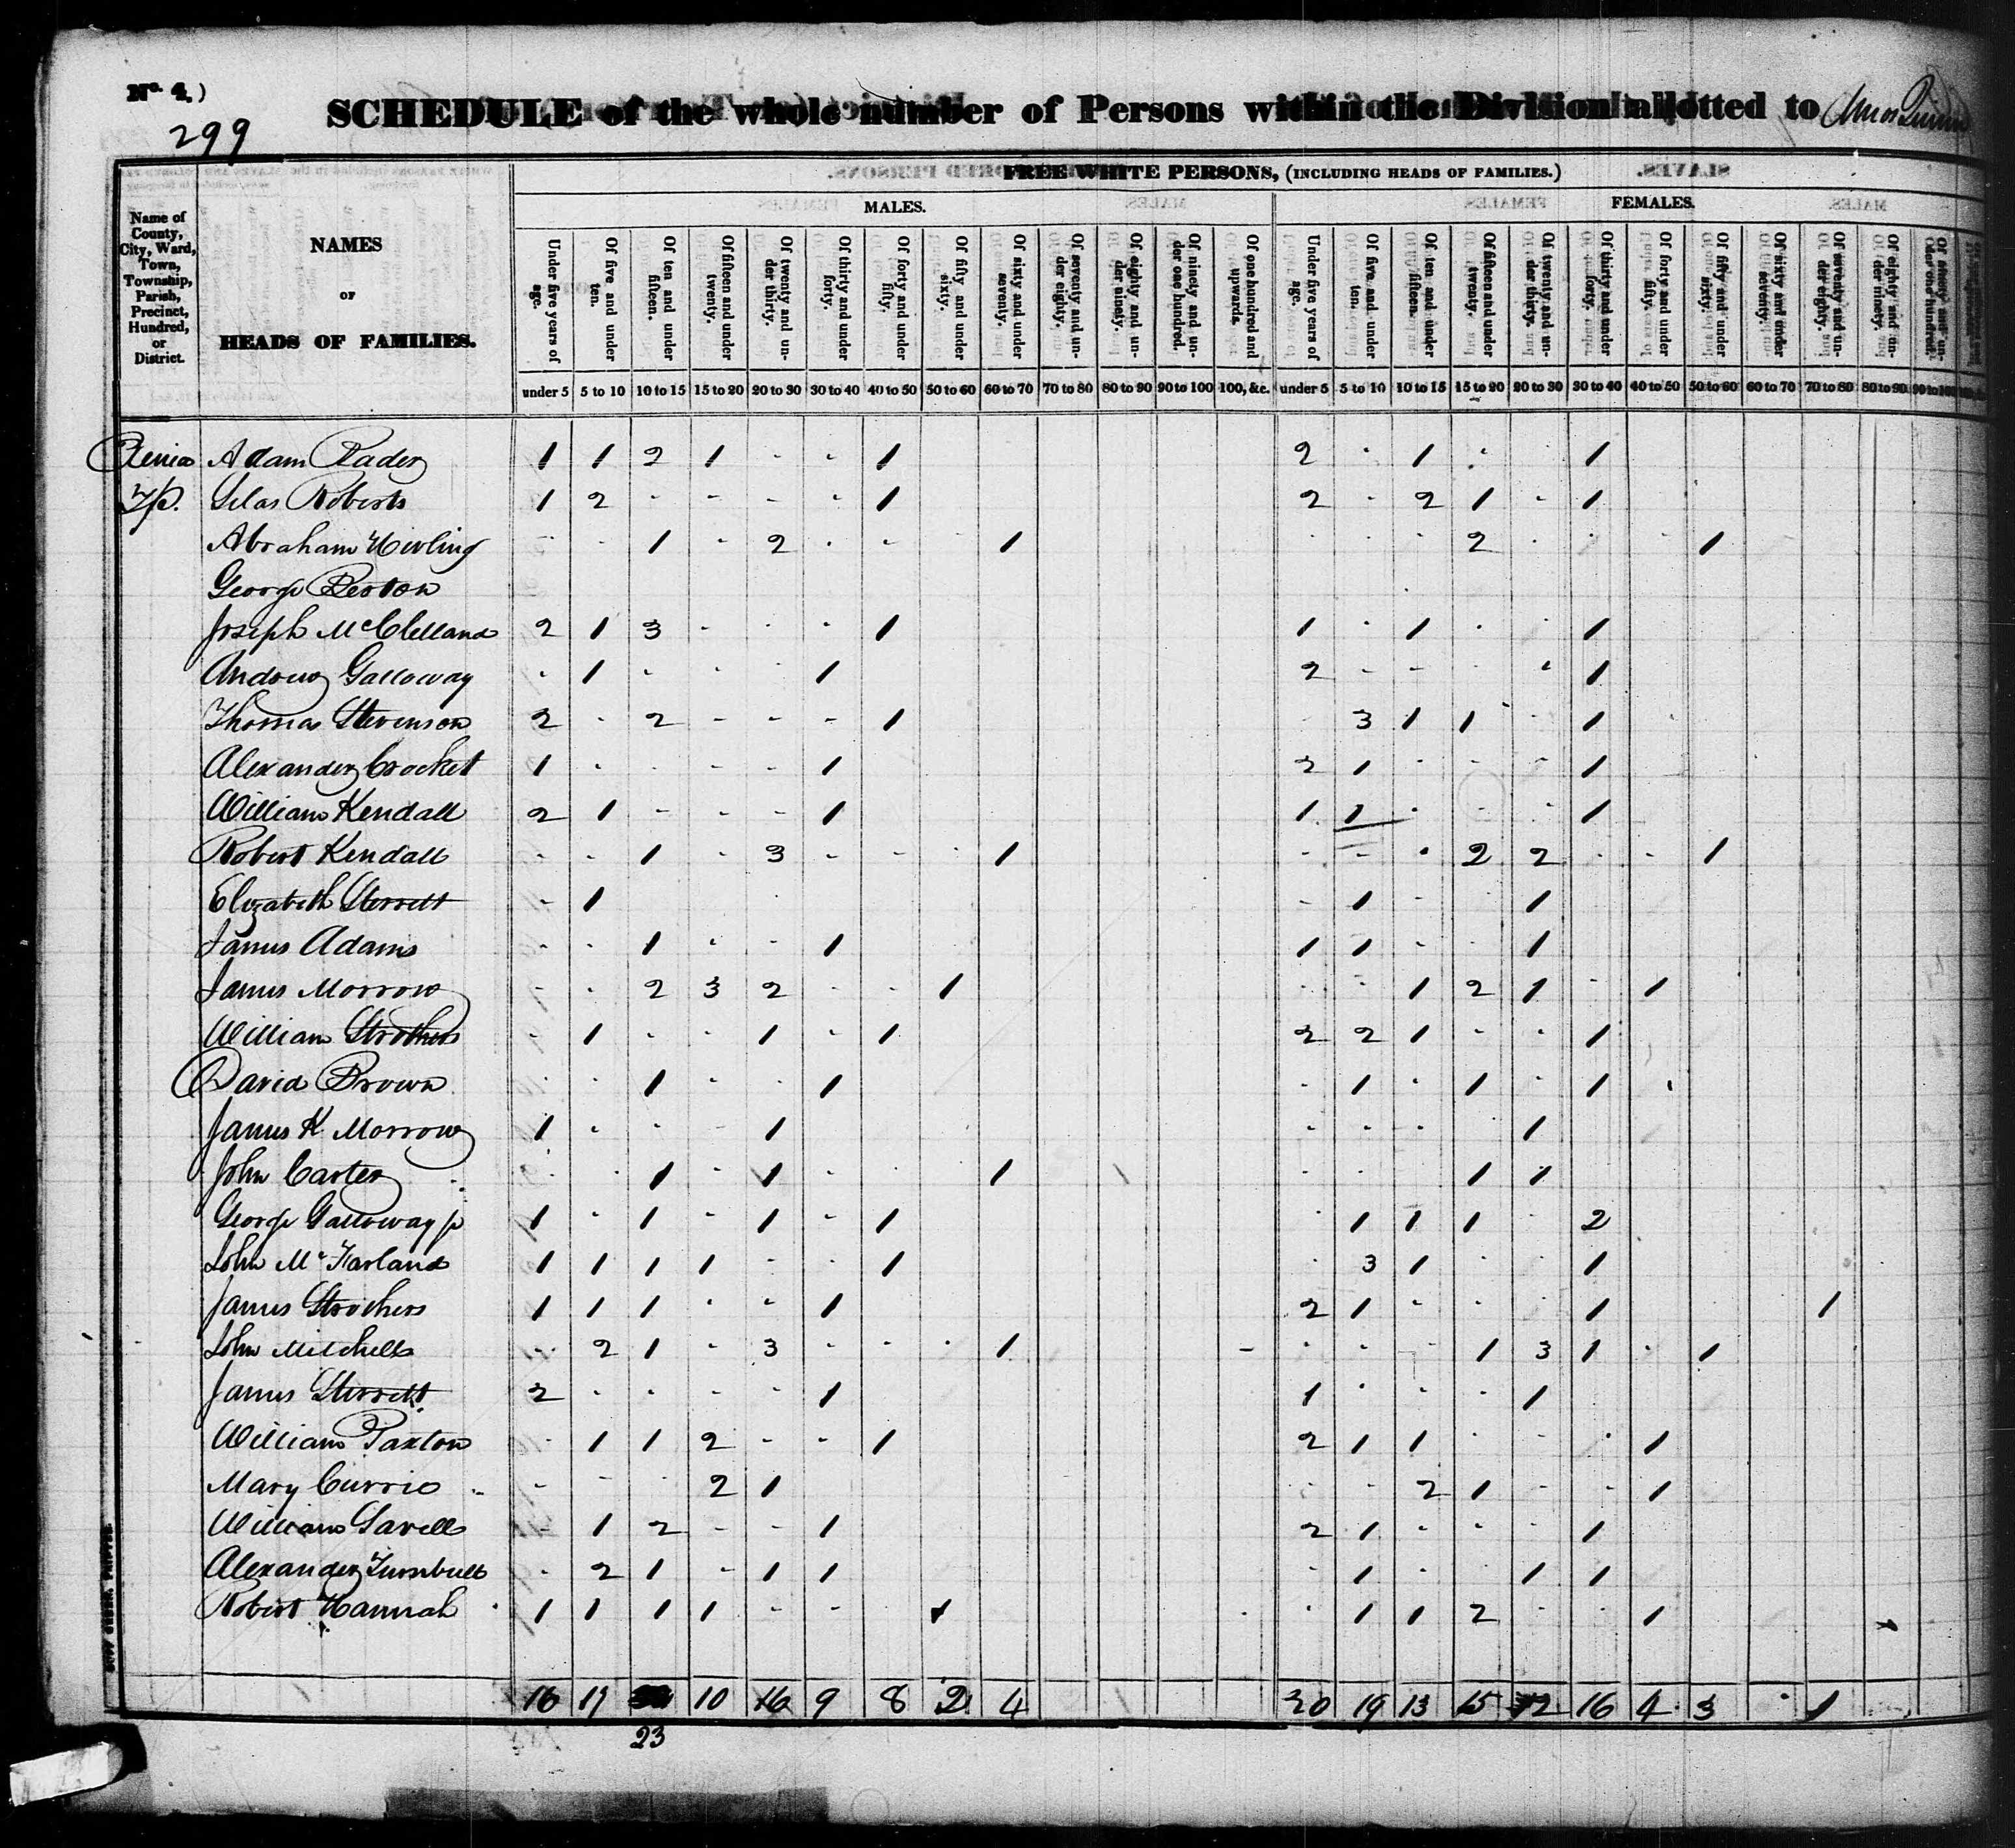 No. 4.)
SCHEDULE of the whole number of Persons within the Division allotted to Amos
299
FREE WHITE PERSONS, (INCLUDING HEADS OF FAMILIES.)
MALES. FEMALES.
Name of County, City, Ward, Town, Township, Parish, Precinct, Hundred, or District.
NAMES
OF
HEADS OF FAMILIES.
Under five years of age. Of five and under ten. Of ten and under fifteen. Of fifteen and under twenty. Of twenty and under thirty. Of thirty and under forty. Of forty and under fifty. Of fifty and under sixty. Of sixty and under seventy. Of seventy and under eighty. Of eighty and under ninety. Of ninety and under one hundred. Of one hundred and upwards. Under five years of age. Of five and under ten. Of ten and under fifteen. Of fifteen and under twenty. Of twenty and under thirty. Of thirty and under forty. Of forty and under fifty. Of fifty and under sixty. Of sixty and under seventy. Of seventy and under eighty. Of eighty and under ninety. Of ninety and under one hundred.
under 5 5 to 10 10 to 15 15 to 20 20 to 30 30 to 40 40 to 50 50 to 60 60 to 70 70 to 80 80 to 90 90 to 100 100, &c. under 5 5 to 10 10 to 15 15 to 20 20 to 30 30 to 40 40 to 50 50 to 60 60 to 70 70 to 80 80 to 90 90 to 100
Xenia Adam Rader 1 1 2 1 - - 1 2 - 1 - - 1
Tp. Silas Roberts 1 2 - - - - 1 2 - 2 1 - 1
Abraham Hivling - - 1 - 2 - - - 1 - - - 2 - - - 1
George Barton
Joseph McClelland 2 1 3 - - - 1 1 - 1 - - 1
Andrew Galloway - 1 - - - 1 2 - - - - 1
Thomas Stevenson 2 - 2 - - - 1 - 3 1 1 - 1
Alexander Crocket 1 - - - - 1 2 1 - - - 1
William Kendall 2 1 - - - 1 1 1 - - - 1
Robert Kendall - - 1 - 3 - - - 1 - - - 2 2 - - 1
Elizabeth Sterrett - 1 - 1 - - 1
James Adams - - 1 - - 1 1 1 - - 1
James Morrow - - 2 3 2 - - 1 - - 1 2 1 - 1
William Strothers - 1 - - 1 - 1 2 2 1 - - 1
David Brown - - 1 - - 1 - 1 - 1 - 1
James K. Morrow 1 - - - 1 - - - - 1
John Carter - - 1 - 1 - - - 1 - - - 1 1
George Galloway jr 1 - 1 - 1 - 1 - 1 1 1 - 2
John McFarland 1 1 1 1 - - 1 - 3 1 - - 1
James Strothers 1 1 1 - - 1 2 1 - - - 1 1
John Mitchell - 2 1 - 3 - - - 1 - - - - 1 3 1 - 1
James Sterrett 2 - - - - 1 1 - - - 1
William Paxton - 1 1 2 - - 1 2 1 1 - - - 1
Mary Currie - - - 2 1 - - 2 1 - - 1
William Savell - 1 2 - - 1 2 1 - - - 1
Alexander Turnbull - 2 1 - 1 1 - 1 - - 1 1
Robert Hannah 1 1 1 1 - - - 1 - 1 1 2 - - 1
16 17 10 16 9 8 2 4 20 19 13 15 12 16 4 3 - 1
23